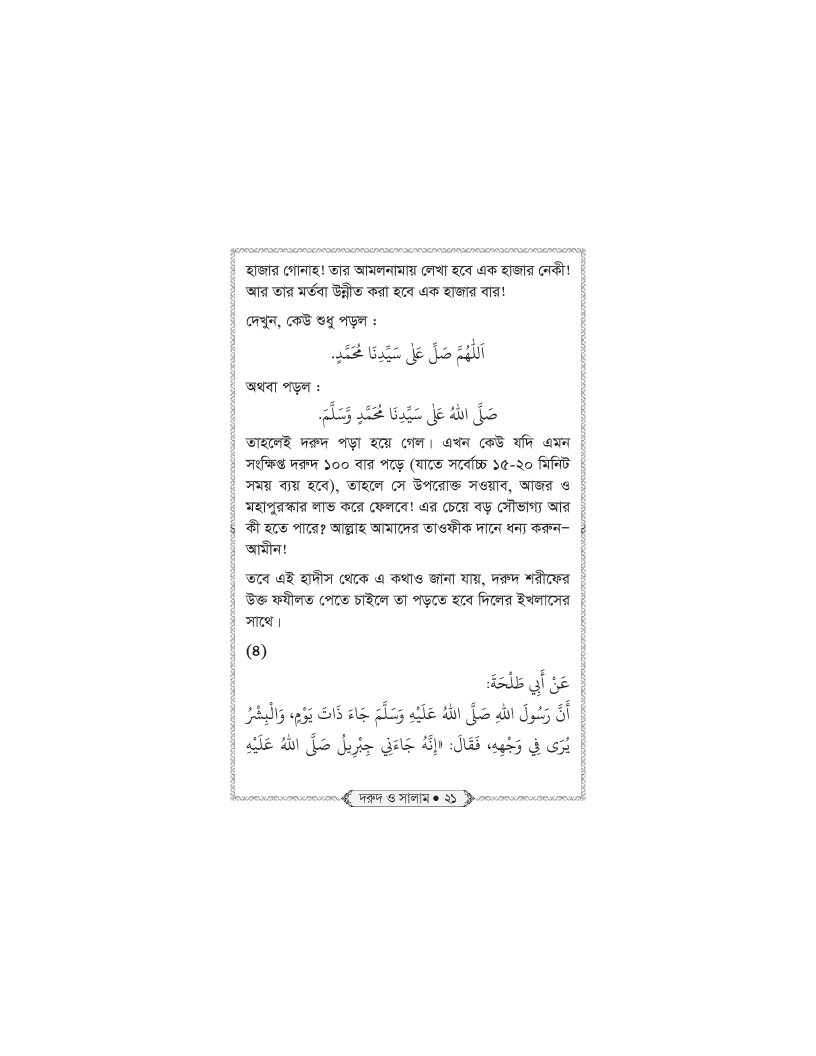 হাজার গোনাহ! তার আমলনামায় লেখা হবে এক হাজার নেকী!
আর তার মর্তবা উন্নীত করা হবে এক হাজার বার!
দেখুন, কেউ শুধু পড়ল :
اَللّٰهُمَّ صَلِّ عَلٰى سَيِّدِنَا مُحَمَّدٍ.
অথবা পড়ল :
صَلَّى اللهُ عَلٰى سَيِّدِنَا مُحَمَّدٍ وَّسَلَّمَ.
তাহলেই দরুদ পড়া হয়ে গেল। এখন কেউ যদি এমন
সংক্ষিপ্ত দরুদ ১০০ বার পড়ে (যাতে সর্বোচ্চ ১৫-২০ মিনিট
সময় ব্যয় হবে), তাহলে সে উপরোক্ত সওয়াব, আজর ও
মহাপুরস্কার লাভ করে ফেলবে! এর চেয়ে বড় সৌভাগ্য আর
কী হতে পারে? আল্লাহ আমাদের তাওফীক দানে ধন্য করুন–
আমীন!
তবে এই হাদীস থেকে এ কথাও জানা যায়, দরুদ শরীফের
উক্ত ফযীলত পেতে চাইলে তা পড়তে হবে দিলের ইখলাসের
সাথে।
(৪)
عَنْ أَبِي طَلْحَةَ:
أَنَّ رَسُولَ اللهِ صَلَّى اللهُ عَلَيْهِ وَسَلَّمَ جَاءَ ذَاتَ يَوْمٍ، وَالْبِشْرُ
يُرَى فِي وَجْهِهِ، فَقَالَ: «إِنَّهُ جَاءَنِي جِبْرِيلُ صَلَّى اللهُ عَلَيْهِ
দরুদ ও সালাম ● ২১